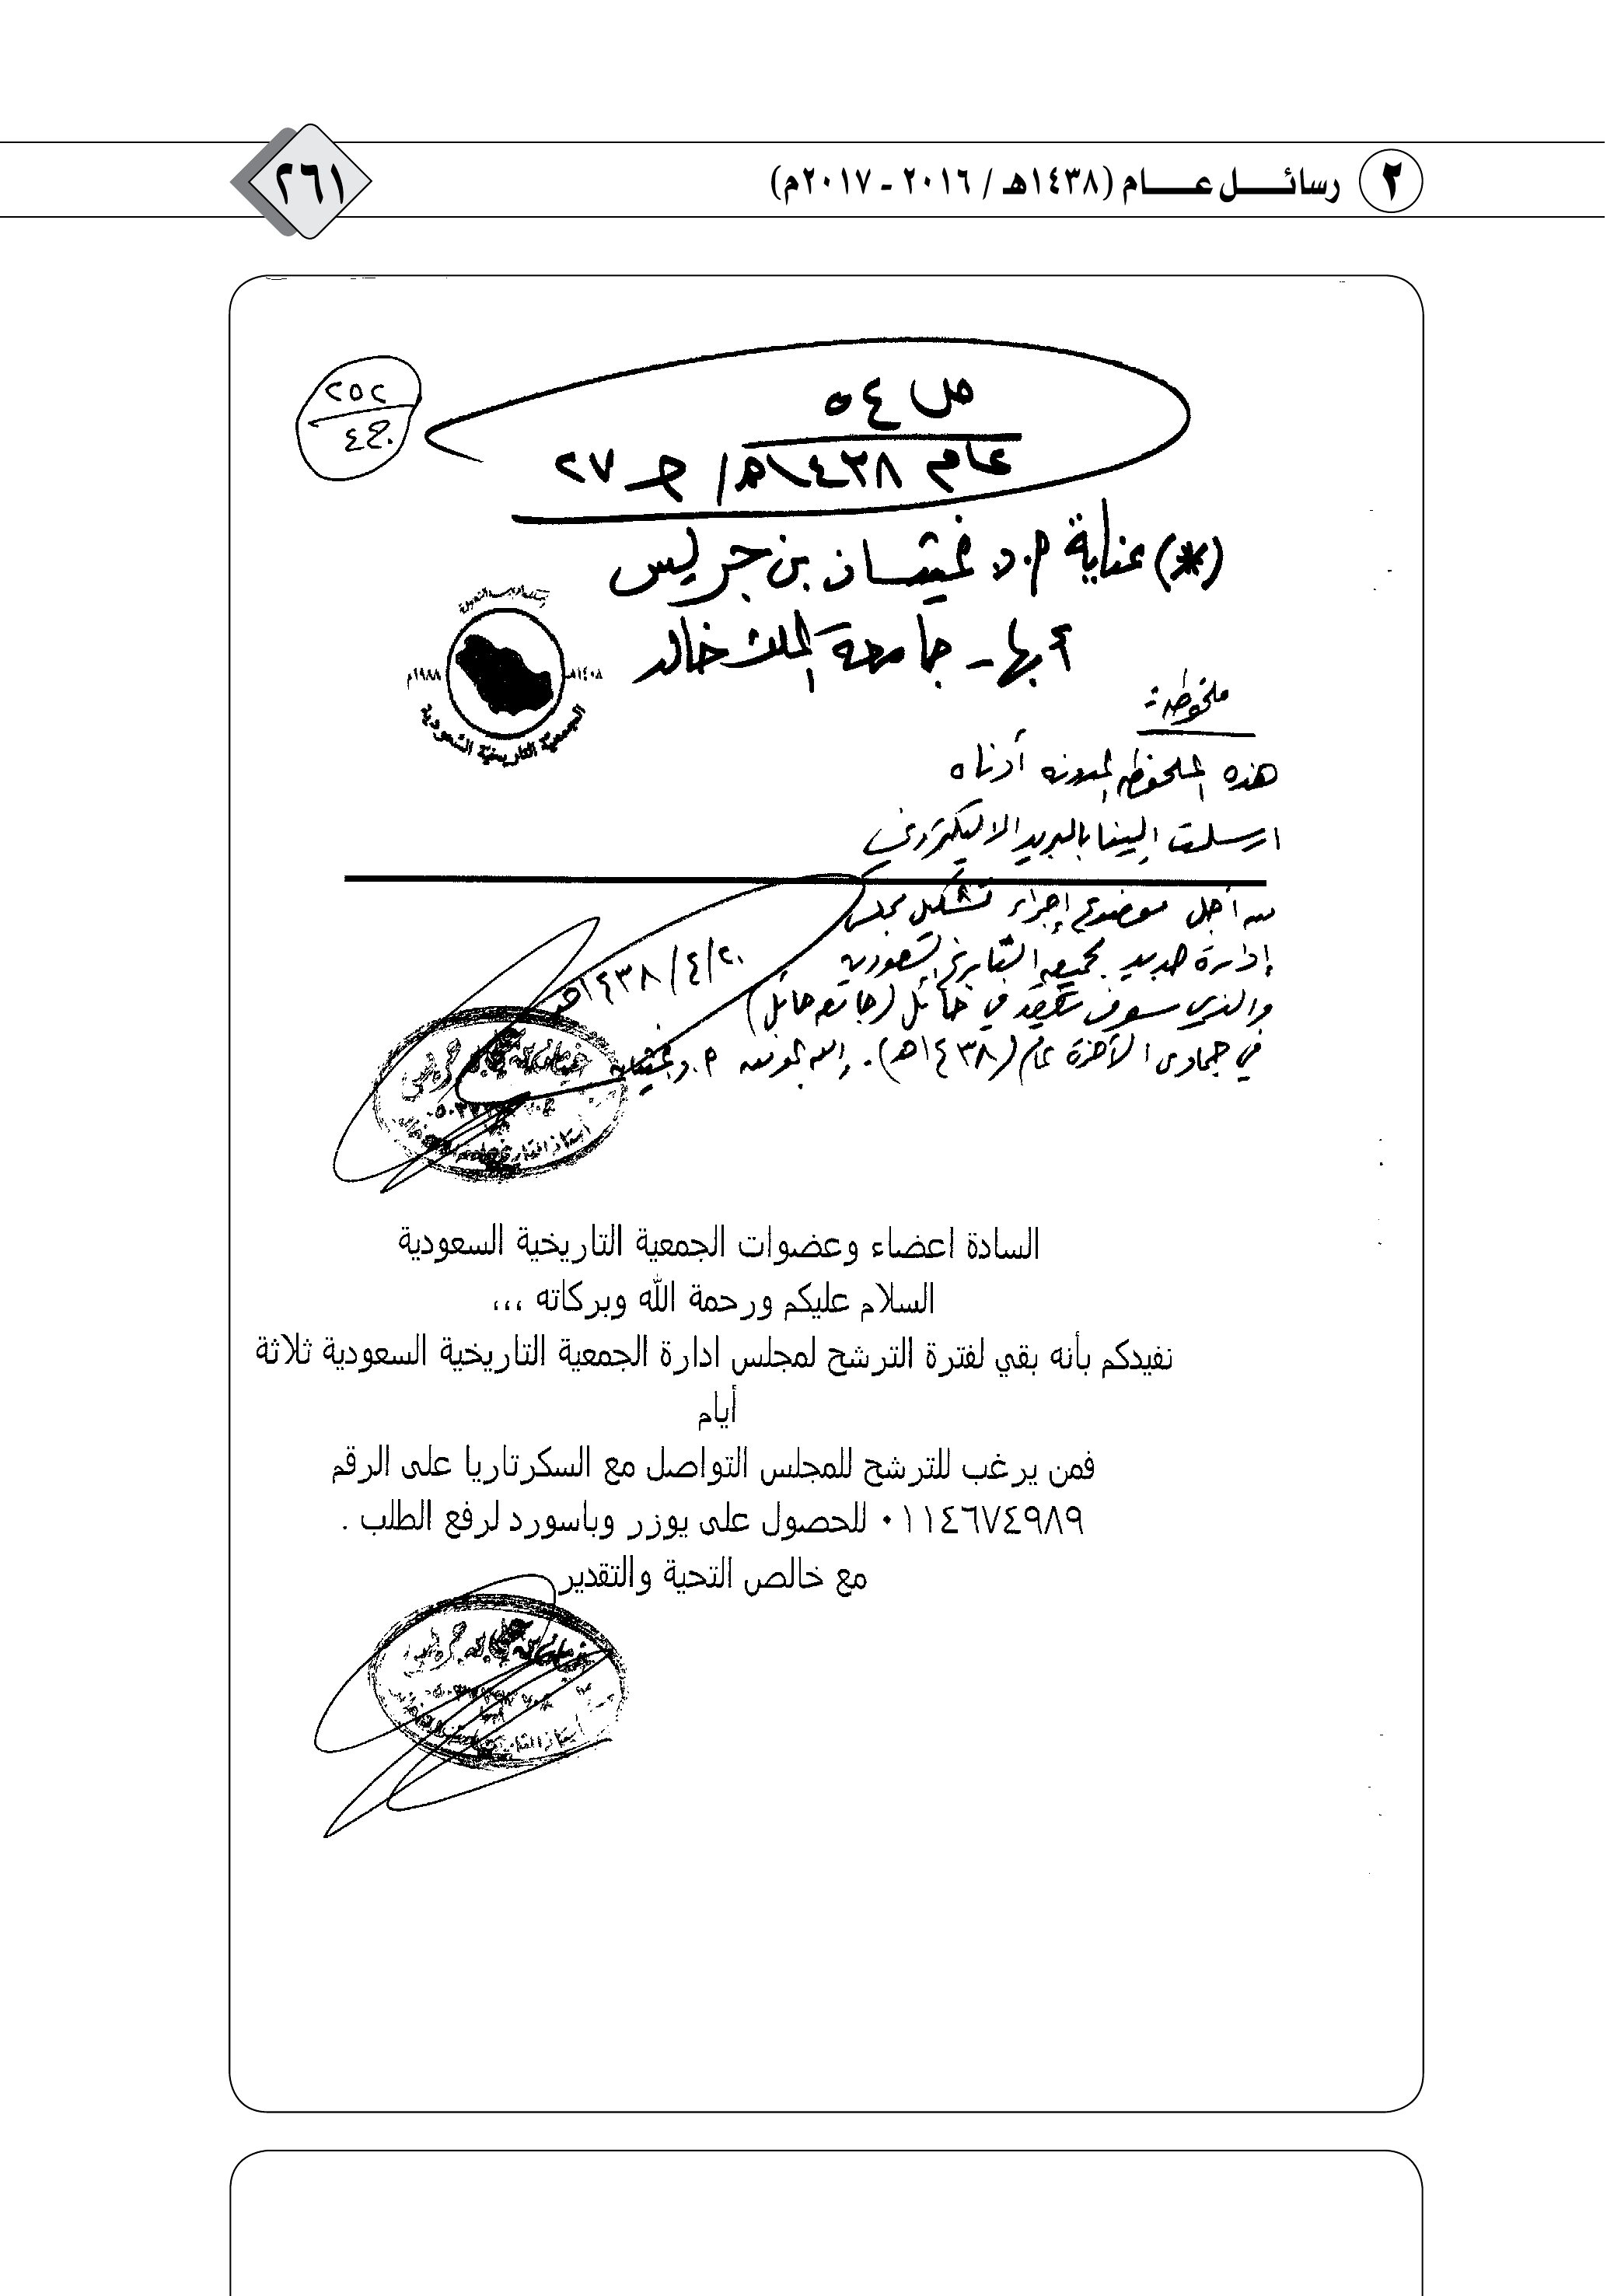 ٢ رسائل عام (١٤٣٨هـ / ٢٠١٦ - ٢٠١٧م)
٢٦١
٢٥٢
ج٤
ص ٥٤
عام ١٤٣٨هـ/ جـ ٢٧
(*) عناية أ.د غيثان بن جريس
أبها - جامعة الملك خالد
١٤٠٨هـ ١٩٨٨م
الجمعية التاريخية السعودية
ملحوظة :
هذه الملحوظة المدونه أدناه
ارسلت الينا بالبريد الاليكتروني
من أجل موضوع إجراء تشكيل مجلس
إدارة جديد لجمعية التاريخ السعودية
والذي سوف تعقد في حائل (جامعه حائل)
في جمادى الآخرة عام (١٤٣٨هـ). والله الموفق أ.د غيثان
٢٠/٤/١٤٣٨هـ
السادة اعضاء وعضوات الجمعية التاريخية السعودية
السلام عليكم ورحمة الله وبركاته ،،،
نفيدكم بأنه بقي لفترة الترشح لمجلس ادارة الجمعية التاريخية السعودية ثلاثة
أيام
فمن يرغب للترشح للمجلس التواصل مع السكرتاريا على الرقم
٠١١٤٦٧٤٩٨٩ للحصول على يوزر وباسورد لرفع الطلب .
مع خالص التحية والتقدير